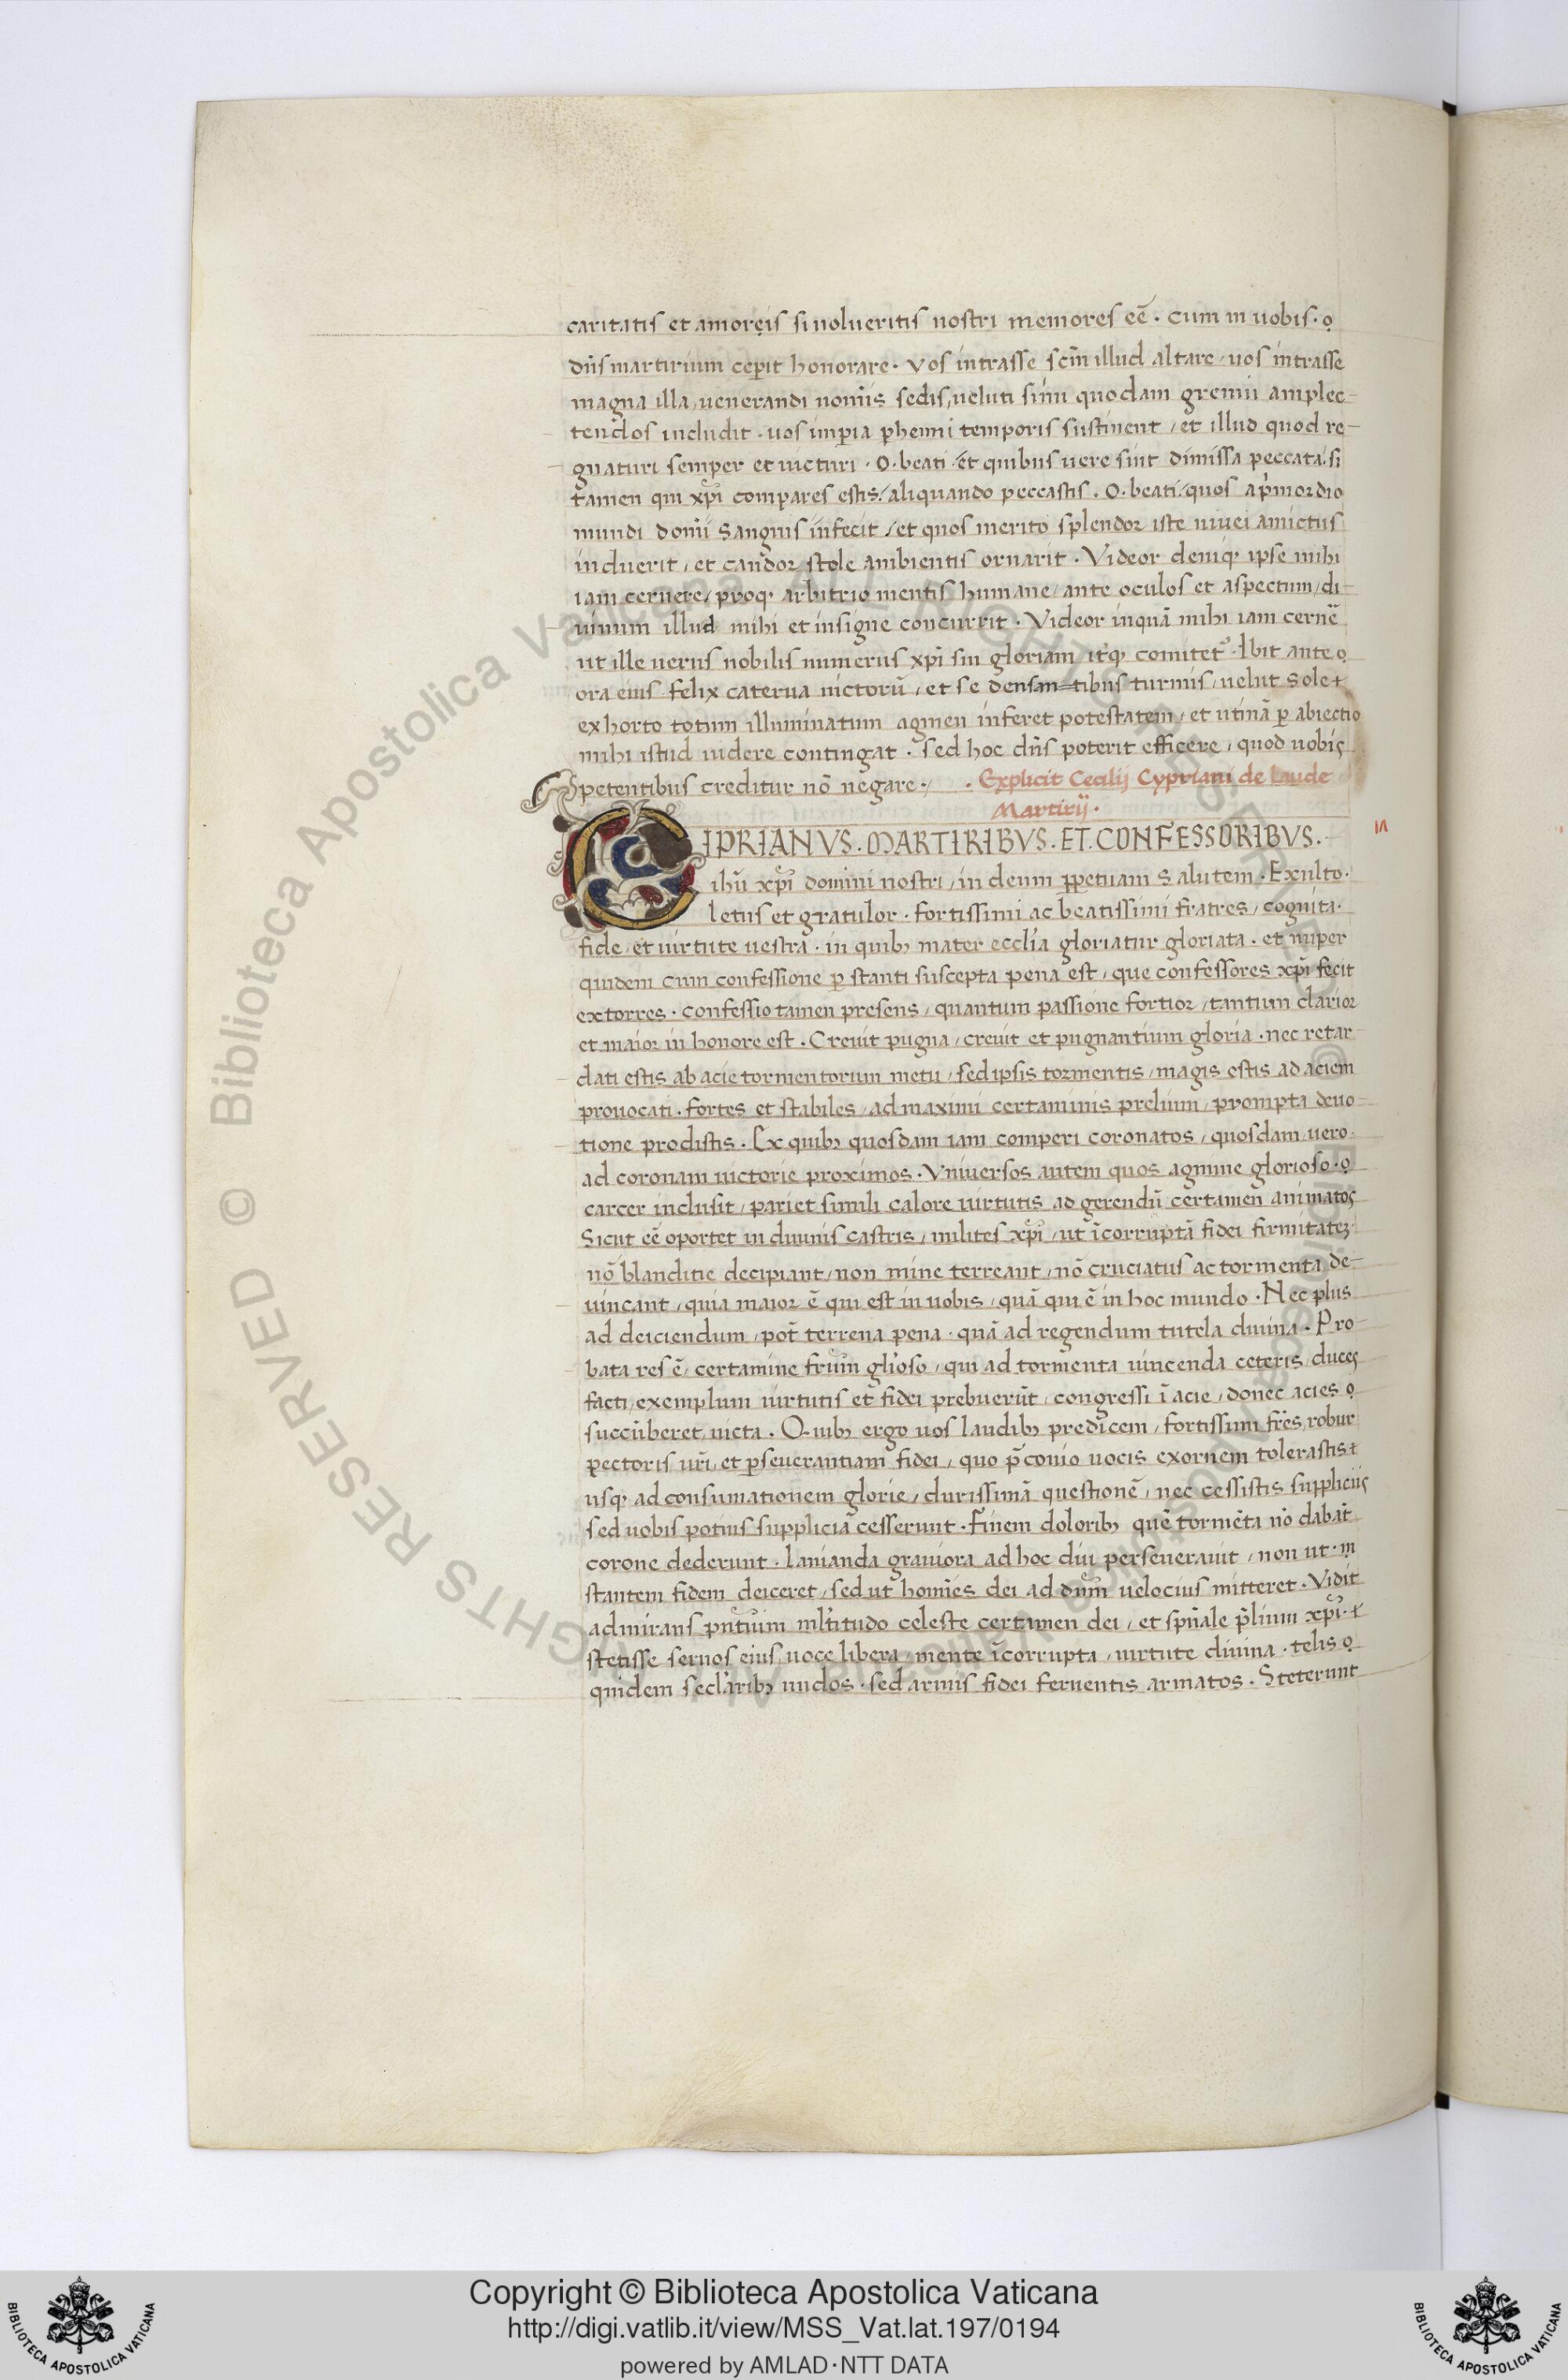 caritatis et amoreis si nolueritis nostri memores eē . cum in uobis .
dn̄s martirium ceperit honorare . vos intrasse scm̄ illud altare / uos intrasse
magna illa uenerandi nomīs sedis / ueluti sinu quodam gremii amplec-
tendos includit . uos imperia perhenni temporis sustinent / et illud quod re-
gnaturi semper et uicturi . O . beati et quibus uere sint dimissa peccata . si
tamen qui xp̄i compares estis / aliquando peccastis . O . beati / quos a primordio
mundi domī sanguis infecit / et quos merito splendor iste niuei amictus
induerit / et candor stole ambientis ornarit . Videor deniq ipse mihi
iam cernere / proq arbitrio mentis humane / ante oculos et aspectum / di-
uinum illud mihi et insigne concurrit . Videor inquā mihi iam cernē
ut ille uerus nobilis numerus xp̄i sui gloriam itq comitet . Ibit ante
ora eius felix caterua uictorū / et se densan=tibus turmis / uelut sole
exhorto totum illuminatum agmen inferet potestatem / et utinā p abiectio
mihi istud uidere contingat . sed hoc dn̄s poterit efficere / quod uobis
petentibus creditur nō negare . . Explicit Cecilij Cypriani de Laude
Martirij .
CIPRIANVS . MARTIRIBVS . ET . CONFESSORIBVS .
ihū xp̄i domini nostri / in deum perpetuam Salutem . Exulto .
letus et gratulor . fortissimi ac beatissimi fratres / cognita .
fide / et uirtute uestra . in quib; mater ecclīa gloriatur gloriata . et nuper
quidem cum confessione p stanti suscepta pena est / que confessores xp̄i fecit
extorres . confessio tamen presens / quantum passione fortior / tantum clarior
et maior in honore est . Creuit pugna / creuit et pugnantium gloria . nec retar
dati estis ab acie tormentorum metu / sed ipsis tormentis / magis estis ad aciem
prouocati . fortes et stabiles / ad maximi certaminis prelium / prompta deuo-
tione prodistis . Ex quib; quosdam iam comperi coronatos / quosdam uero .
ad coronam uictorie proximos . Vniuersos autem quos agmine glorioso .
carcer inclusit / pariet simili calore uirtutis ad gerendū certamen animatos
Sicut eē oportet in diuinis castris / milites xp̄i / ut īcorruptā fidei firmitatez
nō blanditie decipiant / non mine terreant / nō cruciatus ac tormenta de-
uincant / quia maior ē qui est in uobis / quā qui ē in hoc mundo . Nec plus
ad deiciendum / pot̄ terrena pena . quā ad regendum tutela diuina . Pro-
bata res ē / certamine frūm glīoso / qui ad tormenta uincenda ceteris / duces
facti / exemplum uirtutis et fidei prebuerūt / congressi ī acie / donec acies
succūberet uicta . Quib; ergo uos laudib; predicem / fortissimi frēs / robur
pectoris urī / et pseuerantiam fidei / quo p̄conio uocis exornem tolerastis
usq ad consumationem glorie / durissimā questionē / nec cessistis suppliciis
sed uobis potius supplicia cesserunt . Finem dolorib; quē tormēta nō dabāt
corone dederunt . lanianda grauiora ad hoc diu perseuerauit / non ut in
stantem fidem deiceret / sed ut homīes dei ad dn̄m uelocius mitteret . Vidit
admirans pn̄tium ml̄titudo celeste certamen dei / et spn̄ale p̄lium xp̄i .
stetisse seruos eius uoce libera / mente īcorrupta / uirtute diuina . telis
quidem secl̄arib; nudos . sed armis fidei feruentis armatos . Steterunt
© Biblioteca Apostolica Vaticana ALL RIGHTS RESERVED
Copyright © Biblioteca Apostolica Vaticana
http://digi.vatlib.it/view/MSS_Vat.lat.197/0194
powered by AMLAD·NTT DATA
BIBLIOTECA APOSTOLICA VATICANA
BIBLIOTECA APOSTOLICA VATICANA